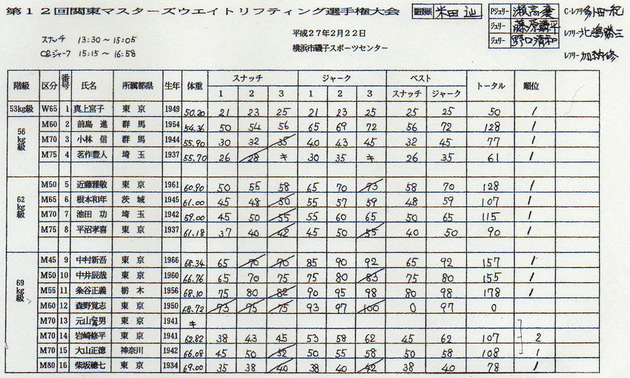 第12回関東マスターズウエイトリフティング選手権大会 米田
スナッチ 13:30〜15:05
C&ジャーク 15:15〜16:58
平成27年2月22日
横浜市磯子スポーツセンター
Pジュリー
ジュリー 藤原
ジュリー 野口清和
C・レフリー
レフリー
レフリー 加納修
階級 区分 番号 氏名 所属都県 生年 体重 スナッチ ジャーク ベスト トータル 順位
1 2 3 1 2 3 スナッチ ジャーク
53kg級 W65 1 真上宮子 東京 1949 50.20 21 23 25 21 23 25 25 25 50 1
56kg級
M60 2 前島 進 群馬 1954 54.36 50 54 56 65 69 72 56 72 128 1
M70 3 小林 信 群馬 1944 55.90 30 32 35 40 43 45 32 45 77 1
M75 4 茗作豊人 埼玉 1937 55.70 26 28 キ 30 35 キ 26 35 61 1
62kg級
M50 5 近藤雅敬 東京 1961 60.90 50 55 58 65 70 73 58 70 128 1
M65 6 根本和年 茨城 1945 61.00 45 48 50 55 57 59 48 59 107 1
M70 7 池田 功 埼玉 1942 59.00 45 50 55 55 60 65 50 65 115 1
M75 8 平沼孝喜 東京 1937 61.18 37 40 42 45 50 55 40 50 90 1
69kg級
M45 9 中村新吾 東京 1966 68.34 65 70 70 85 90 92 65 92 157 1
M50 10 中井辰哉 東京 1960 66.76 65 70 75 75 80 83 75 80 155 1
M55 11 粂谷正義 栃木 1956 68.10 75 80 82 90 95 98 80 98 178 1
M60 12 森野寛志 東京 1950 68.72 73 75 75 93 97 100 0 97 0
M70 13 元山 男 東京 1941 キ
M70 14 岩崎修平 東京 1941 62.82 38 43 45 53 58 62 45 62 107 2
M70 15 大山正徳 神奈川 1942 66.08 45 50 52 50 55 58 50 58 108 1
M80 16 柴坂穂七 東京 1934 69.00 35 38 40 38 40 42 38 40 78 1